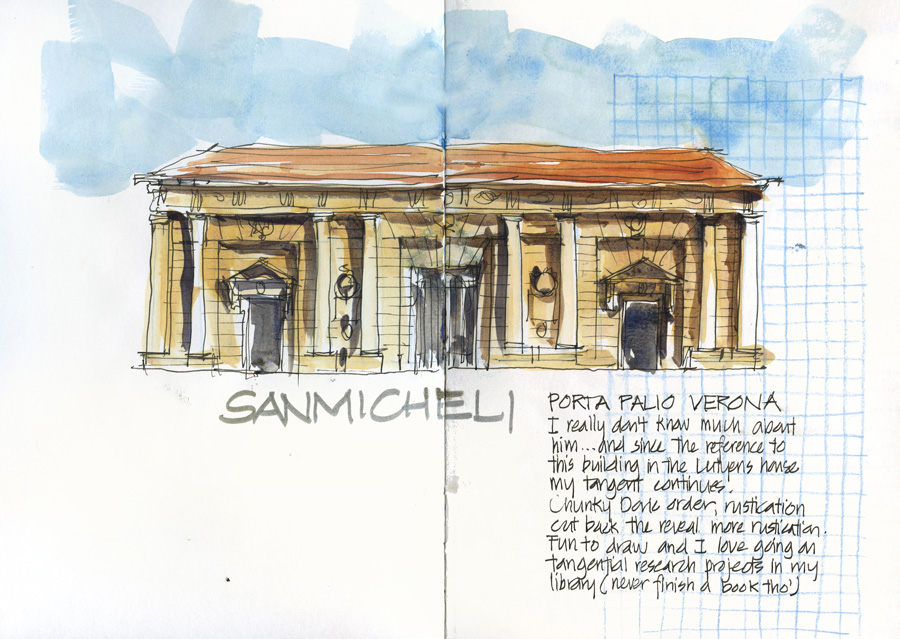 SANMICHELI
PORTA PALIO VERONA
I really don't know much about
him....and since the reference to
this building in the Lutyens house
my tangent continues!
Chunky Doric order, rustication
cut back the reveal more rustication.
Fun to draw and I love going on
tangential research projects in my
library (never finish a book tho')